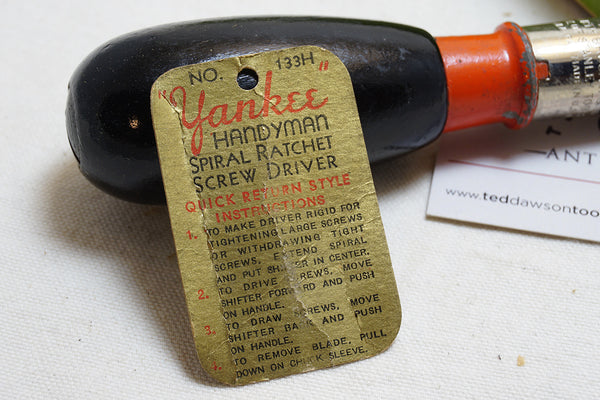 NO. 133H
"Yankee"
HANDYMAN
SPIRAL RATCHET
SCREW DRIVER
QUICK RETURN STYLE
INSTRUCTIONS
1. TO MAKE DRIVER RIGID FOR
TIGHTENING LARGE SCREWS
OR WITHDRAWING TIGHT
SCREWS, EXTEND SPIRAL
AND PUT SHIFTER IN CENTER.
2. TO DRIVE SCREWS, MOVE
SHIFTER FORWARD AND PUSH
ON HANDLE.
3. TO DRAW SCREWS, MOVE
SHIFTER BACK AND PUSH
ON HANDLE.
4. TO REMOVE BLADE, PULL
DOWN ON CHUCK SLEEVE.
ANT
www.teddawsontoo